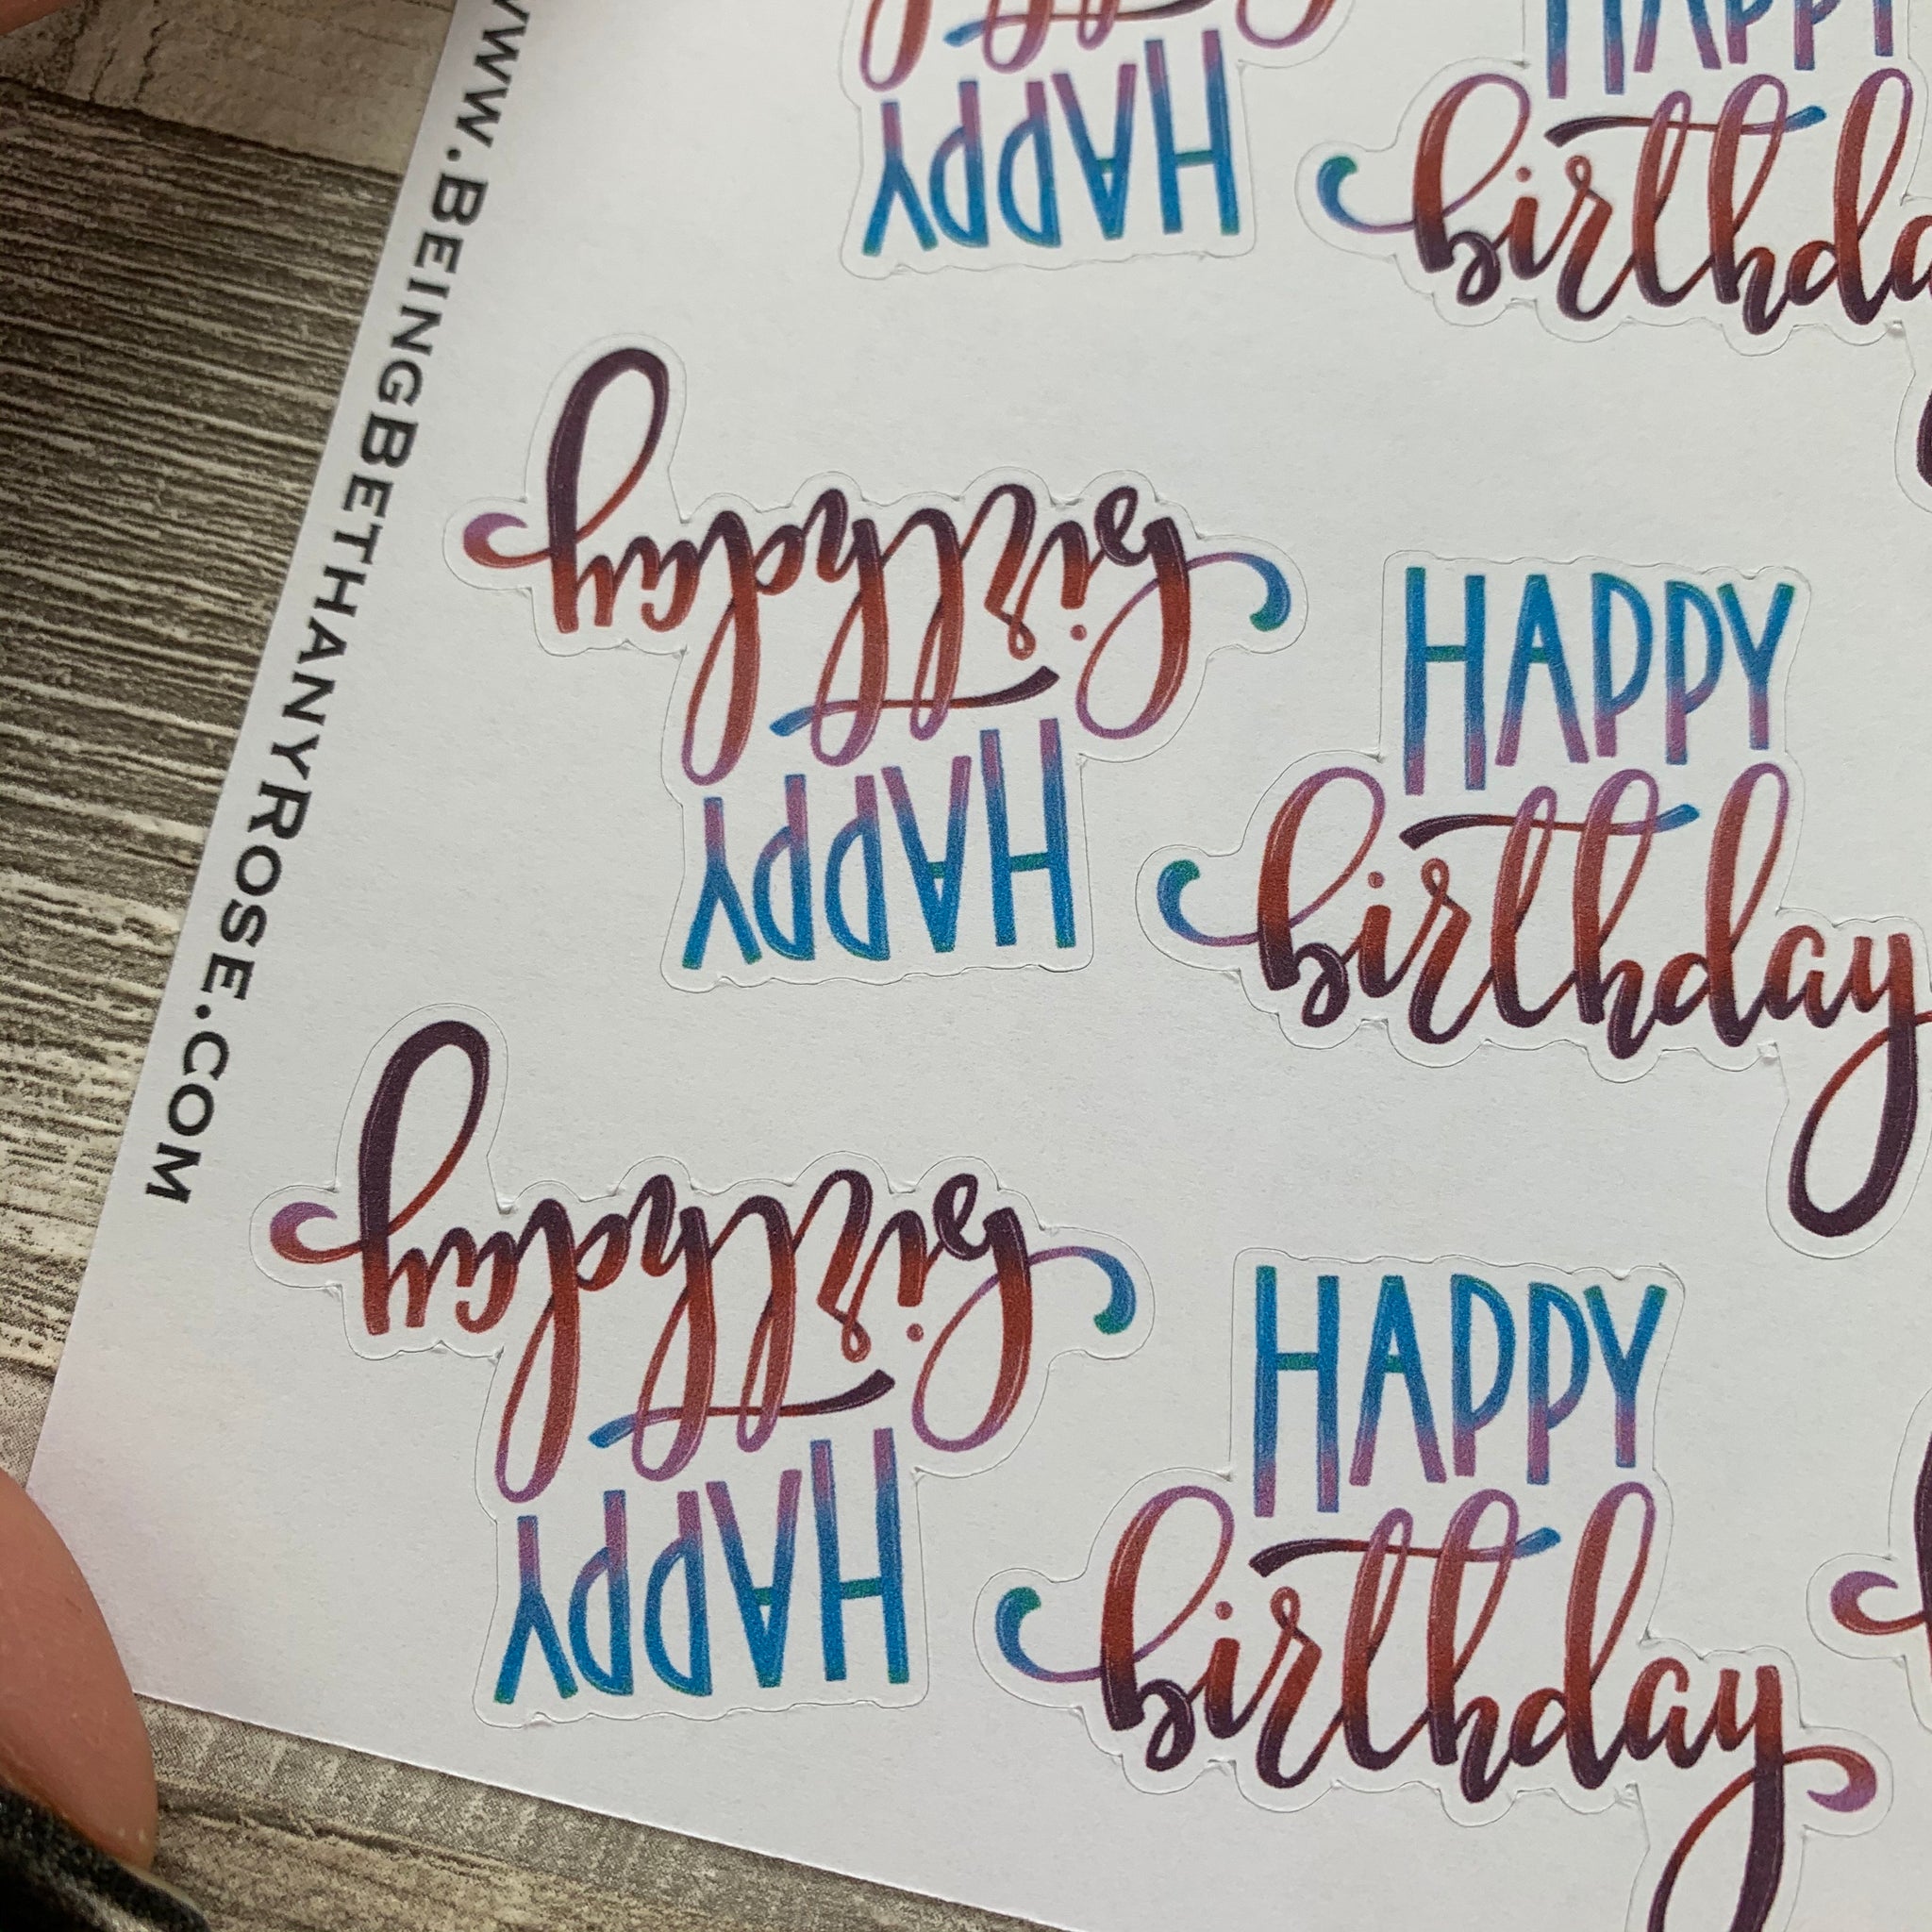 WWW.BEINGBETHANYROSE.COM
HAPPY
HAPPY
birthday
HAPPY
birthday
HAPPY
birthday
HAPPY
birthday
HAPPY
birthday